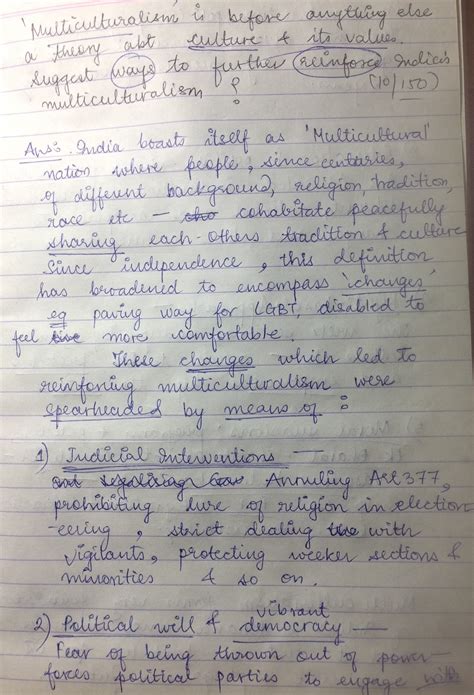 'Multiculturalism is before anything else
a theory abt culture & its values.
Suggest ways to further reinforce India's
multiculturalism ?
(10/150)
Ans:. India boasts itself as 'Multicultural'
nation where people, since centuries,
of different background, religion, tradition,
race etc — cohabitate peacefully
sharing each-others tradition & culture
Since independence, this definition
has broadened to encompass 'changes'
eg paving way for LGBT, disabled to
feel more comfortable.
These changes which led to
reinfoning multiculturalism were
spearheaded by means of :
1) Judicial Interventions —
Annuling Art 377,
prohibiting lure of religion in election
-eering, strict dealing with
vigilants, protecting weeker sections &
minorities & so on.
2) Political will & vibrant democracy —
Fear of being thrown out of power
forces political parties to engage with